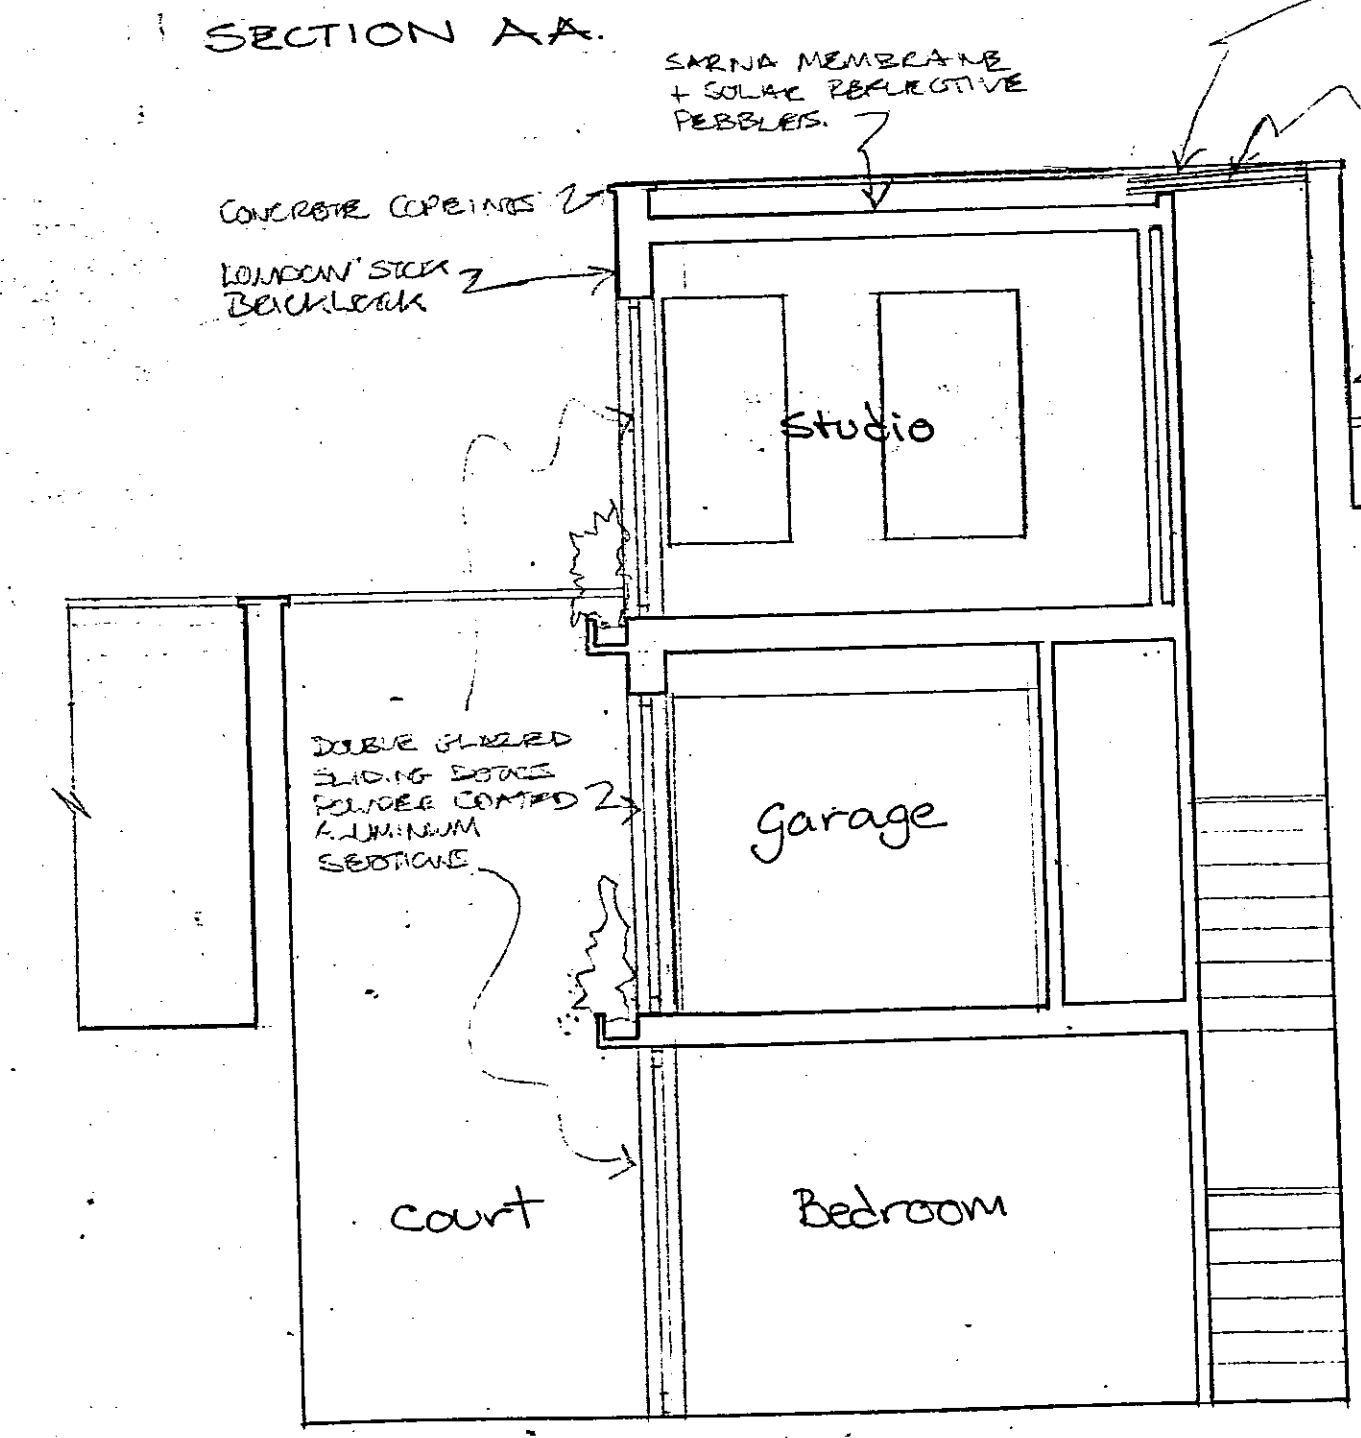 SECTION AA.
SARNA MEMBRANE
+ SOLAR REFLECTIVE
PEBBLES.
CONCRETE COPEINGS
LONDON STOCK
BRICKWORK
Studio
DOUBLE GLAZED
SLIDING DOORS
POWDER COATED
ALUMINIUM
SECTIONS
Garage
Court
Bedroom